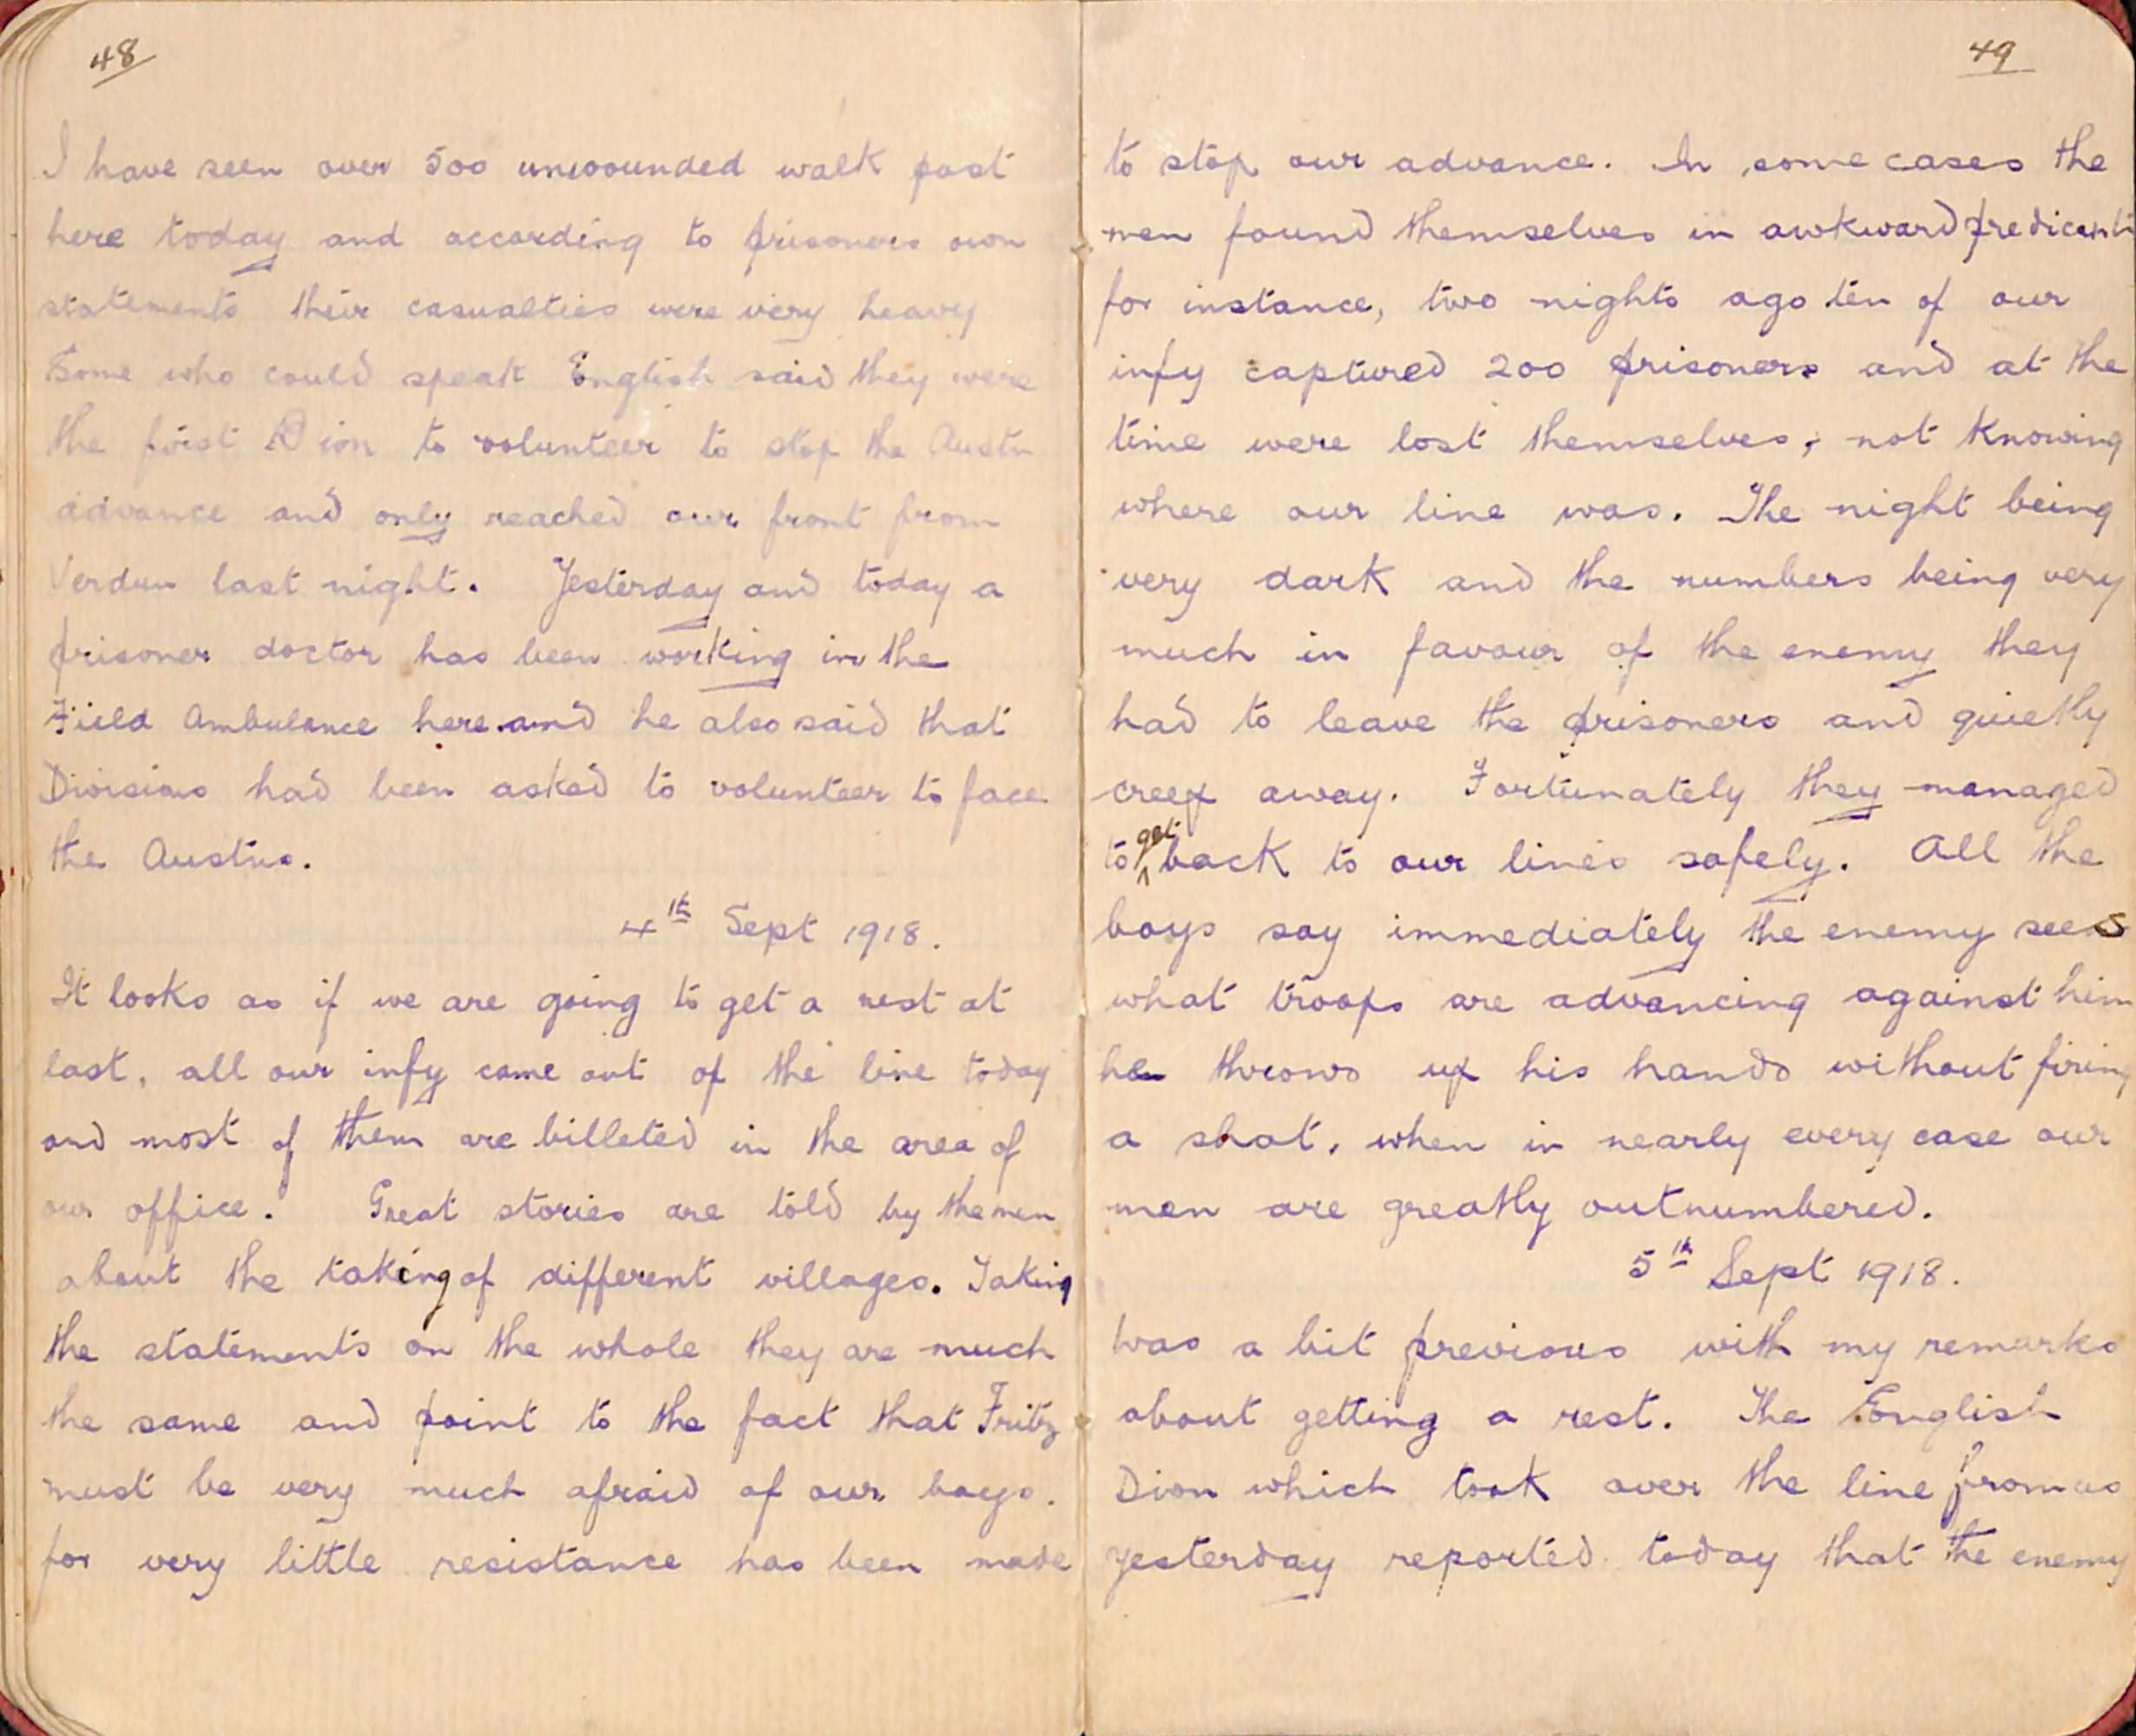 48
I have seen over 500 unwounded walk past
here today and according to prisoners own
statements their casualties were very heavy
Some who could speak English said they were
the first Dion to volunteer to stop the Austn
advance and only reached our front from
Verdun last night. Yesterday and today a
prisoner doctor has been working in the
Field Ambulance here and he also said that
Divisions had been asked to volunteer to face
the Austns.
4th Sept 1918.
It looks as if we are going to get a rest at
last, all our infy came out of the line today
and most of them are billeted in the area of
our office. Great stories are told by the men
about the taking of different villages. Taking
the statements on the whole they are much
the same and point to the fact that Fritz
must be very much afraid of our boys.
for very little resistance has been made
49
to stop our advance. In some cases the
men found themselves in awkward
for instance, two nights ago ten of our
infy captured 200 prisoners and at the
time were lost themselves, not knowing
where our line was. The night being
very dark and the numbers being very
much in favour of the enemy they
had to leave the prisoners and quietly
creep away. Fortunately they managed
to get back to our lines safely. All the
boys say immediately the enemy sees
what troops are advancing against him
he throws up his hands without firing
a shot, when in nearly every case our
men are greatly outnumbered.
5th Sept 1918.
Was a bit previous with my remarks
about getting a rest. The English
Dion which took over the line from us
yesterday reported today that the enemy